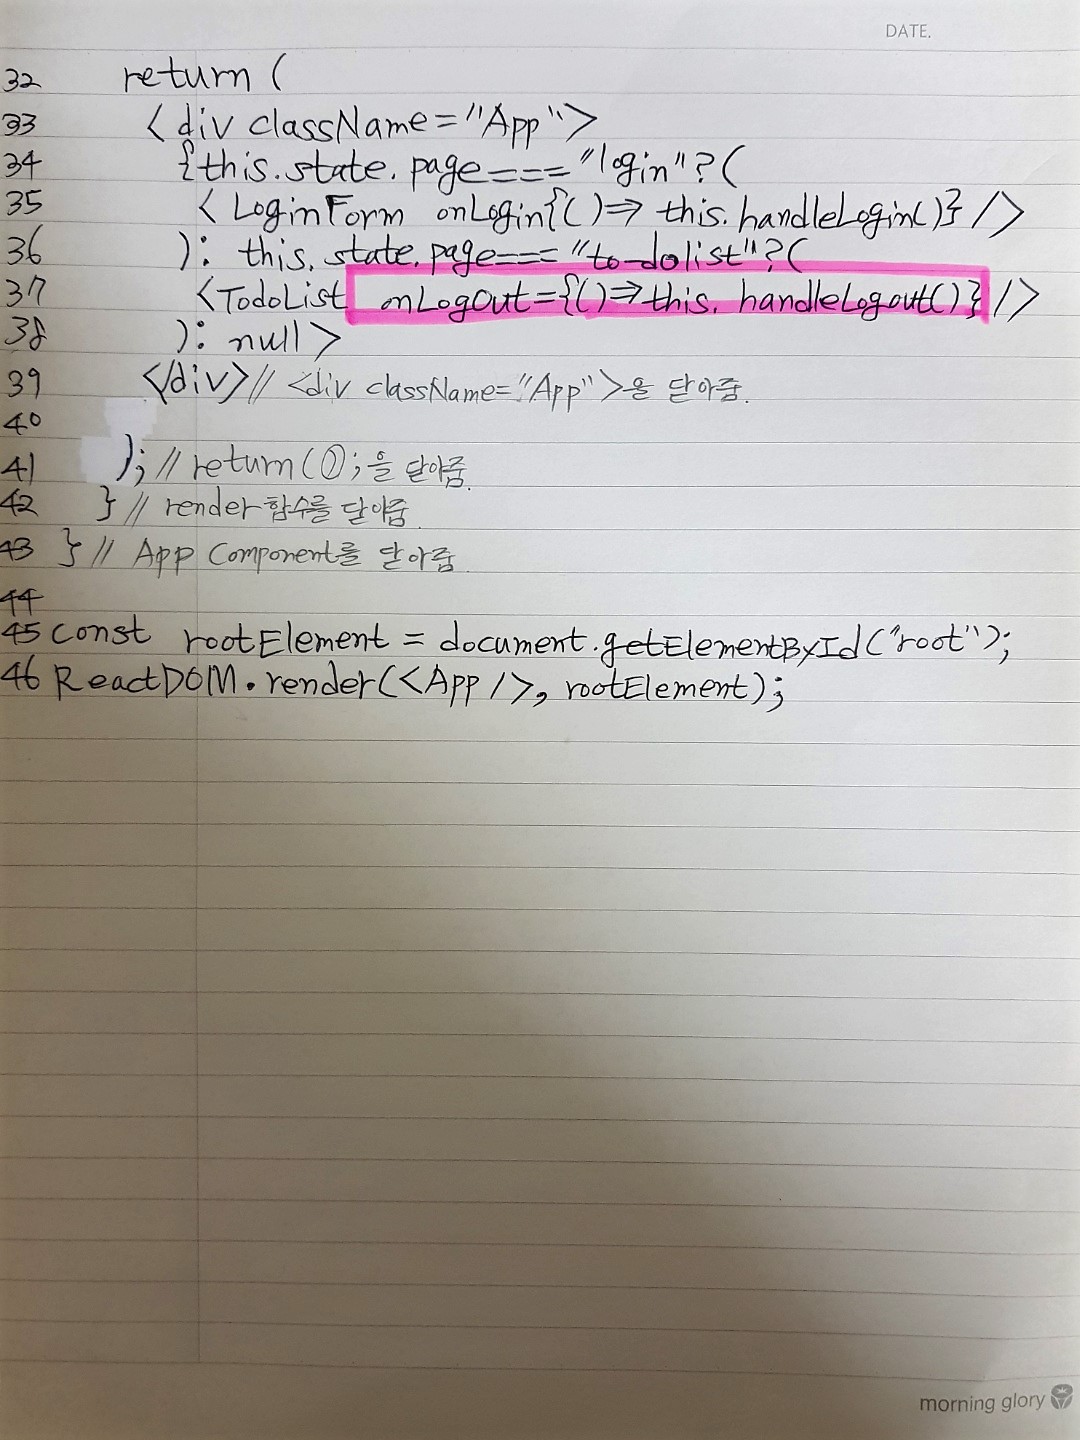 DATE.
32 return (
33 <div className="App">
34 {this.state.page==="login"?(
35 <LoginForm onLogin{()=>this.handleLogin()}/>
36 ): this.state.page==="to-dolist"?(
37 <TodoList onLogOut={()=>this.handleLogout()}/>
38 ): null>
39 </div>// <div className="App">을 닫아줌.
40
41 ); // return(①;을 닫아줌.
42 } // render 함수를 닫아줌.
43 } // App Component를 닫아줌.
44
45 const rootElement = document.getElementById("root");
46 ReactDOM.render(<App/>, rootElement);
morning glory